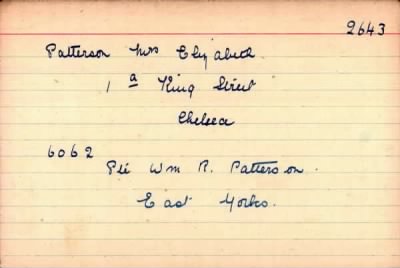 2643
Patterson Mrs Elizabeth.
1 a King Street
Chelsea
6062
Pte Wm R. Patterson.
East Yorks.